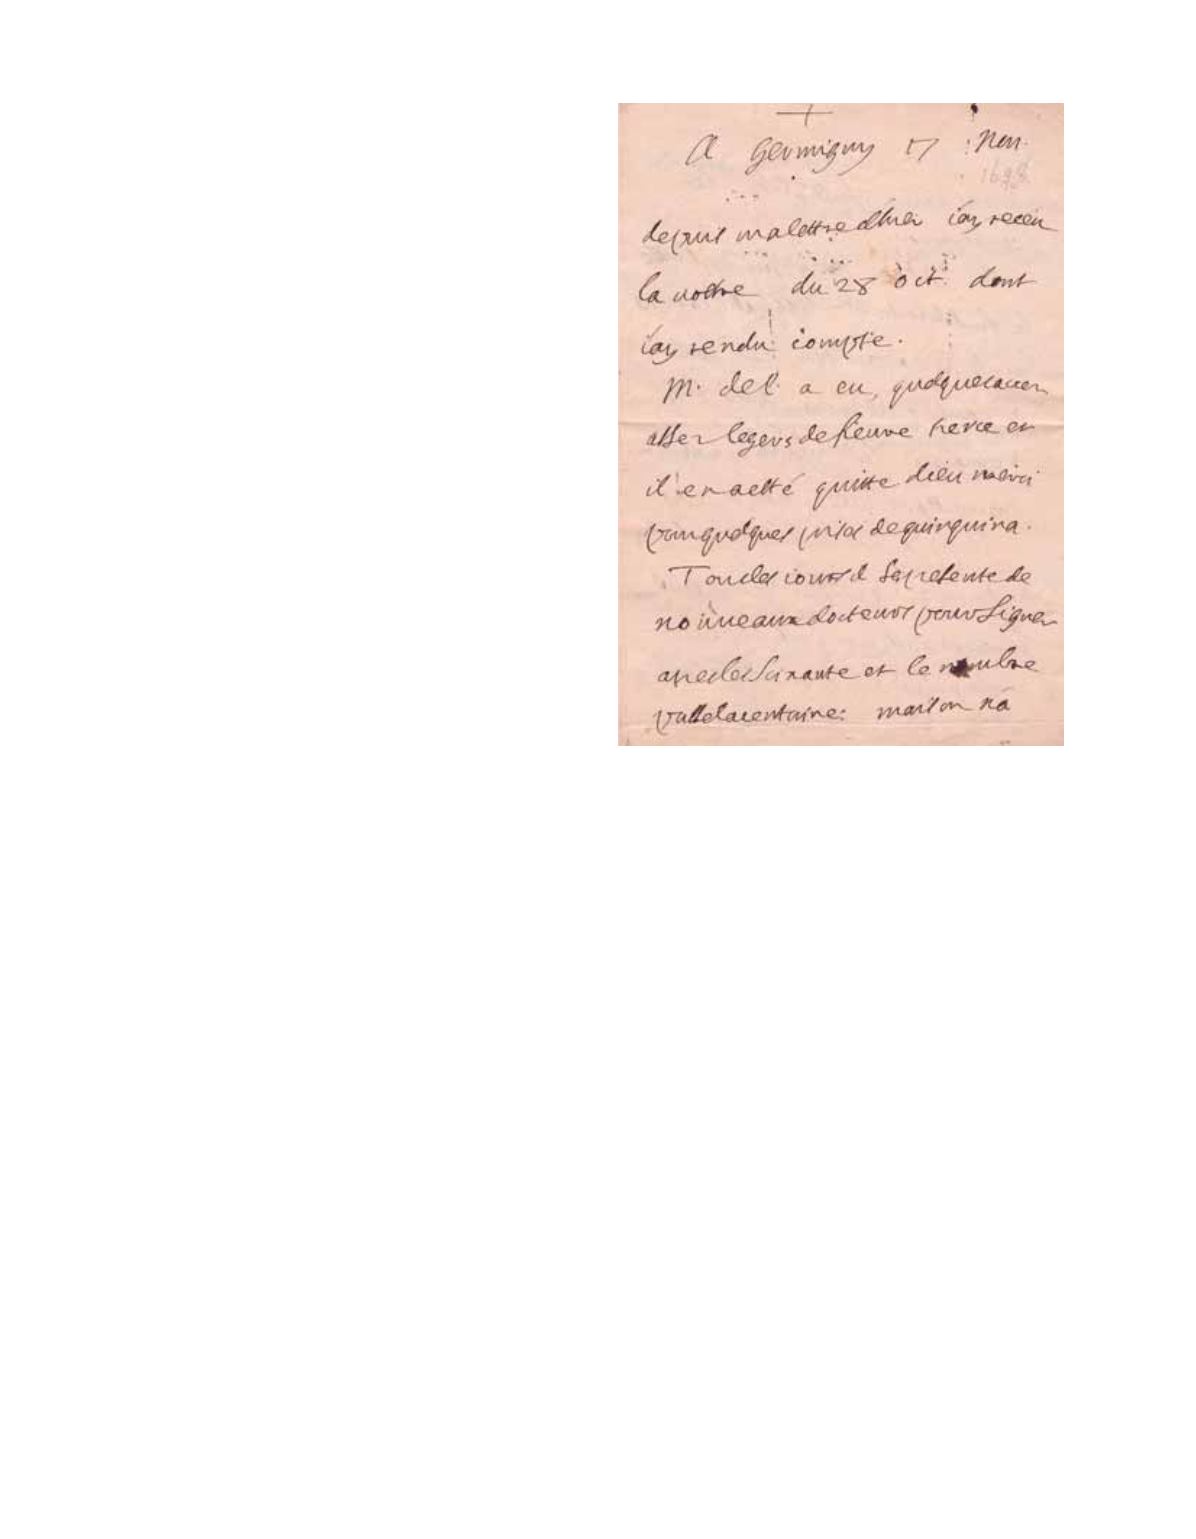 A Germigny 17 Nov.
1698
depuis ma lettre dhier iay receu
la vostre du 28 oct. dont
iay rendu compte.
M. de P. a eu, quelques acces
asses legers de fieuvre tierce et
il en a esté quitte dieu merci
pour quelques prises de quinquina.
Tous les iours il se presente de
nouveaux docteurs pour signer
apres les soixante et le nombre
passe la centaine: mais on na